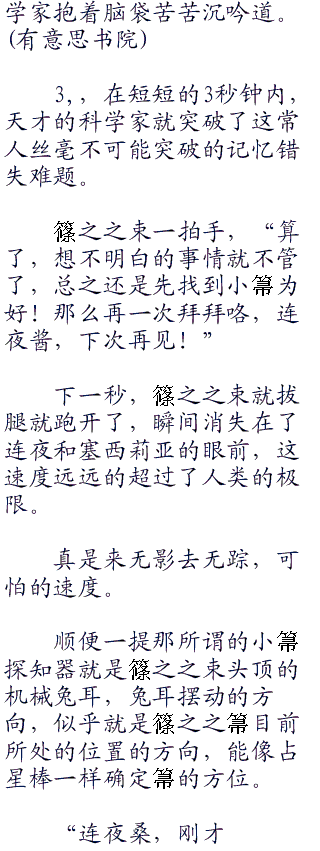 学家抱着脑袋苦苦沉吟道。
(有意思书院)
3,，在短短的3秒钟内，
天才的科学家就突破了这常
人丝毫不可能突破的记忆错
失难题。
篠之之束一拍手，“算
了，想不明白的事情就不管
了，总之还是先找到小箒为
好！那么再一次拜拜咯，连
夜酱，下次再见！”
下一秒，篠之之束就拔
腿就跑开了，瞬间消失在了
连夜和塞西莉亚的眼前，这
速度远远的超过了人类的极
限。
真是来无影去无踪，可
怕的速度。
顺便一提那所谓的小箒
探知器就是篠之之束头顶的
机械兔耳，兔耳摆动的方
向，似乎就是篠之之箒目前
所处的位置的方向，能像占
星棒一样确定箒的方位。
“连夜桑，刚才